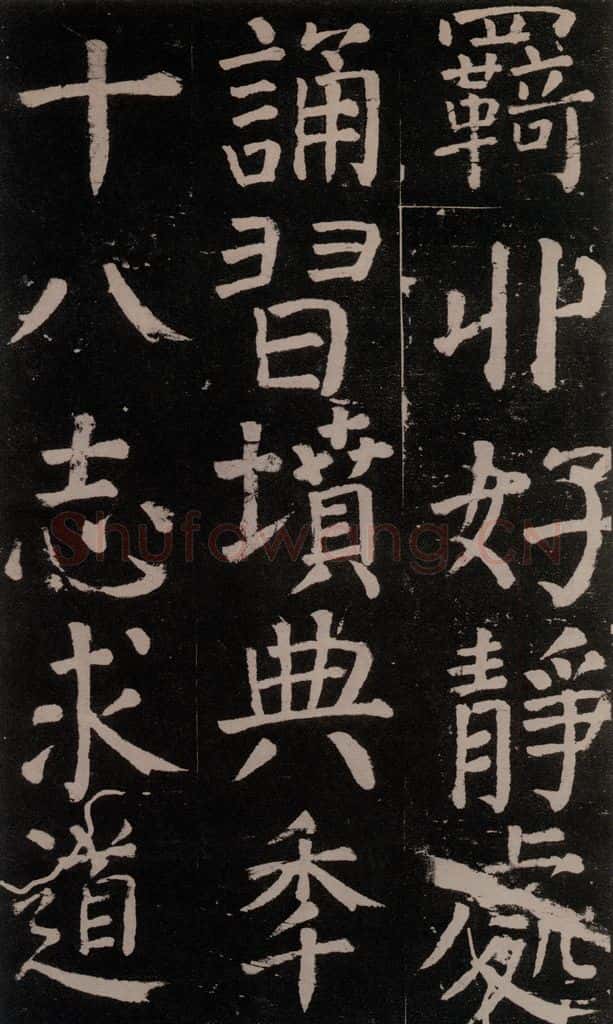 羇丱好靜處
誦習墳典秊
十八志求道
Shufawang.CN